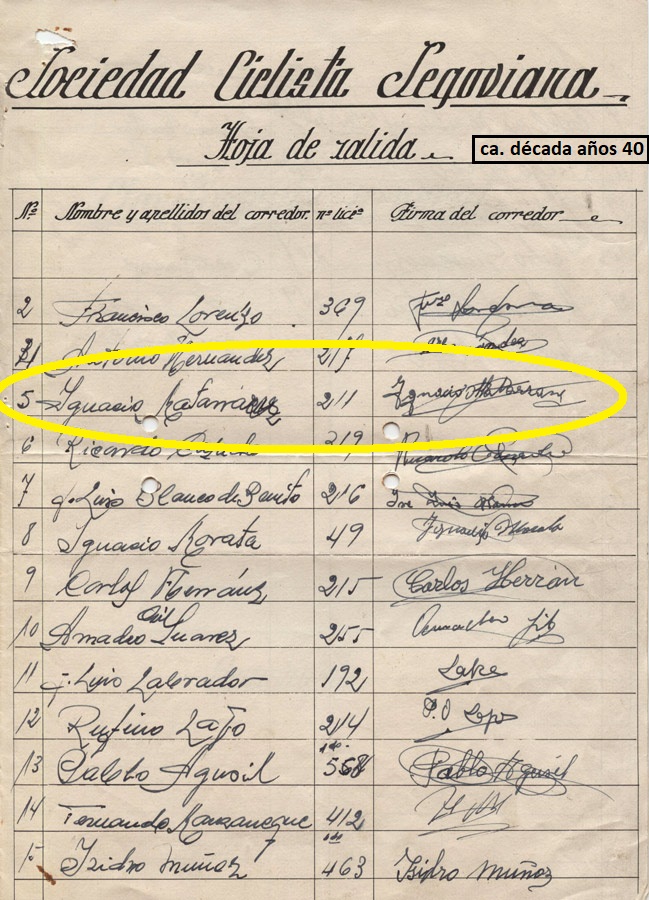 Sociedad Ciclista Segoviana
Hoja de salida
ca. década años 40
Nº Nombre y apellidos del corredor. nº licia Firma del corredor
2 Francisco Lorenzo 369
Antonio Hernandez 217
5 Ignacio Matarranz 211 Ignacio Matarranz
6 Ricardo 219
7 J. Luis Blanco de Benito 216 José Luis Blanco
8 Ignacio Morata 49
9 Carlos Herránz 215 Carlos Herrán
10 Amadeo Gil Suarez 255 Gil
11 J. Luis Labrador 192 Labr
12 Rufino Lafo 214 P.O
13 Pablo Agusil 558 Pablo Agusil
14 Fernando Manzaneque 412
15 Isidro Muñoz 463 Isidro Muñoz